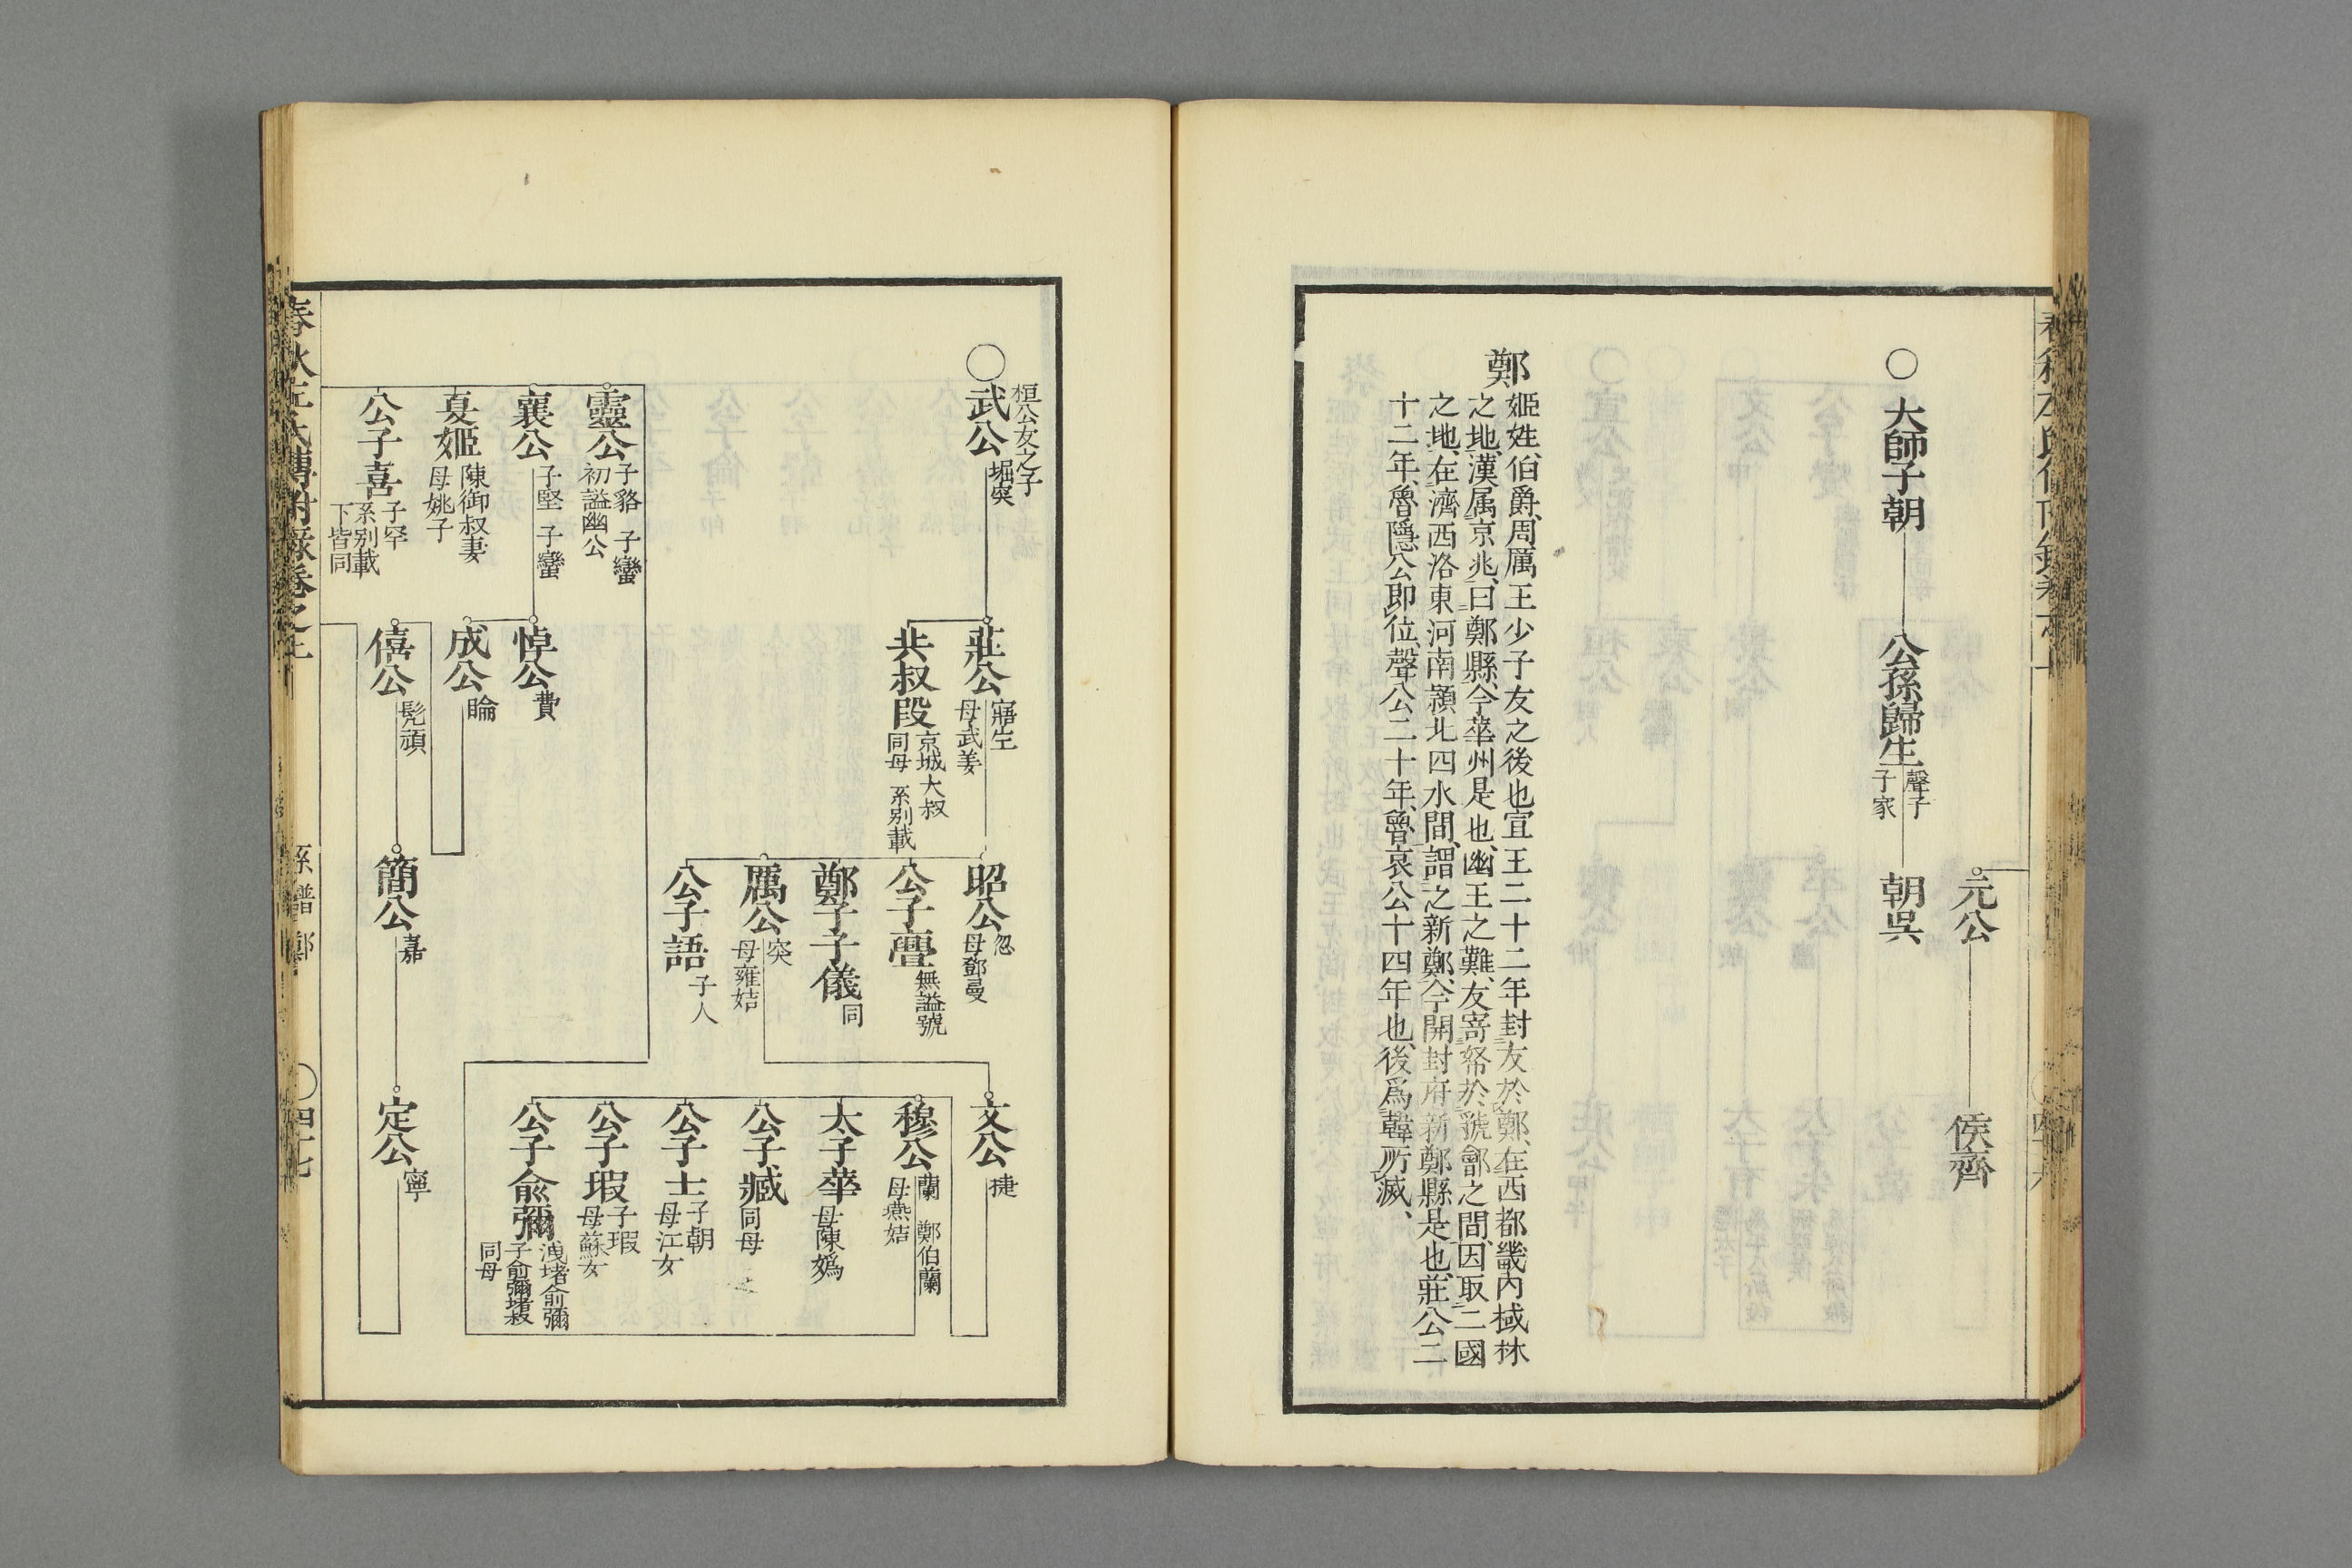 元公
侯齊
○
大師子朝
公孫歸生
聲子
子家
朝吳
鄭
姬姓、伯爵、周厲王少子友之後也宣王二十二年封友於鄭、在西都畿內棫林
之地、漢属京兆、曰鄭縣、今華州是也、幽王之難、友寄帑於虢鄶之間、因取二國
之地、在濟西洛東河南潁北四水間、謂之新鄭、今開封府新鄭縣是也、莊公二
十二年、魯隱公即位、聲公二十年、魯哀公十四年也、後爲韓所滅、
○
桓公友之子
武公
堀突
莊公
寤生
母武姜
共叔段
京城大叔
同母 系別載
昭公
忽
母鄧曼
公子亹
無謚號
鄭子子儀
同
厲公
突
母雍姞
公子語
子人
文公
捷
穆公
蘭 鄭伯蘭
母燕姞
太子華
母陳嬀
公子臧
同母
公子士
子朝
母江女
公子瑕
子瑕
母蘇女
公子兪彌
洩堵兪彌
子兪彌堵叔
同母
靈公
子貉 子蠻
初謚幽公
襄公
子堅 子蠻
夏姬
陳御叔妻
母姚子
公子喜
子罕
系別載
下皆同
悼公
費
成公
睔
僖公
髡頑
簡公
嘉
定公
寧
春秋左氏傳附錄卷之上
系譜 鄭
○四十七